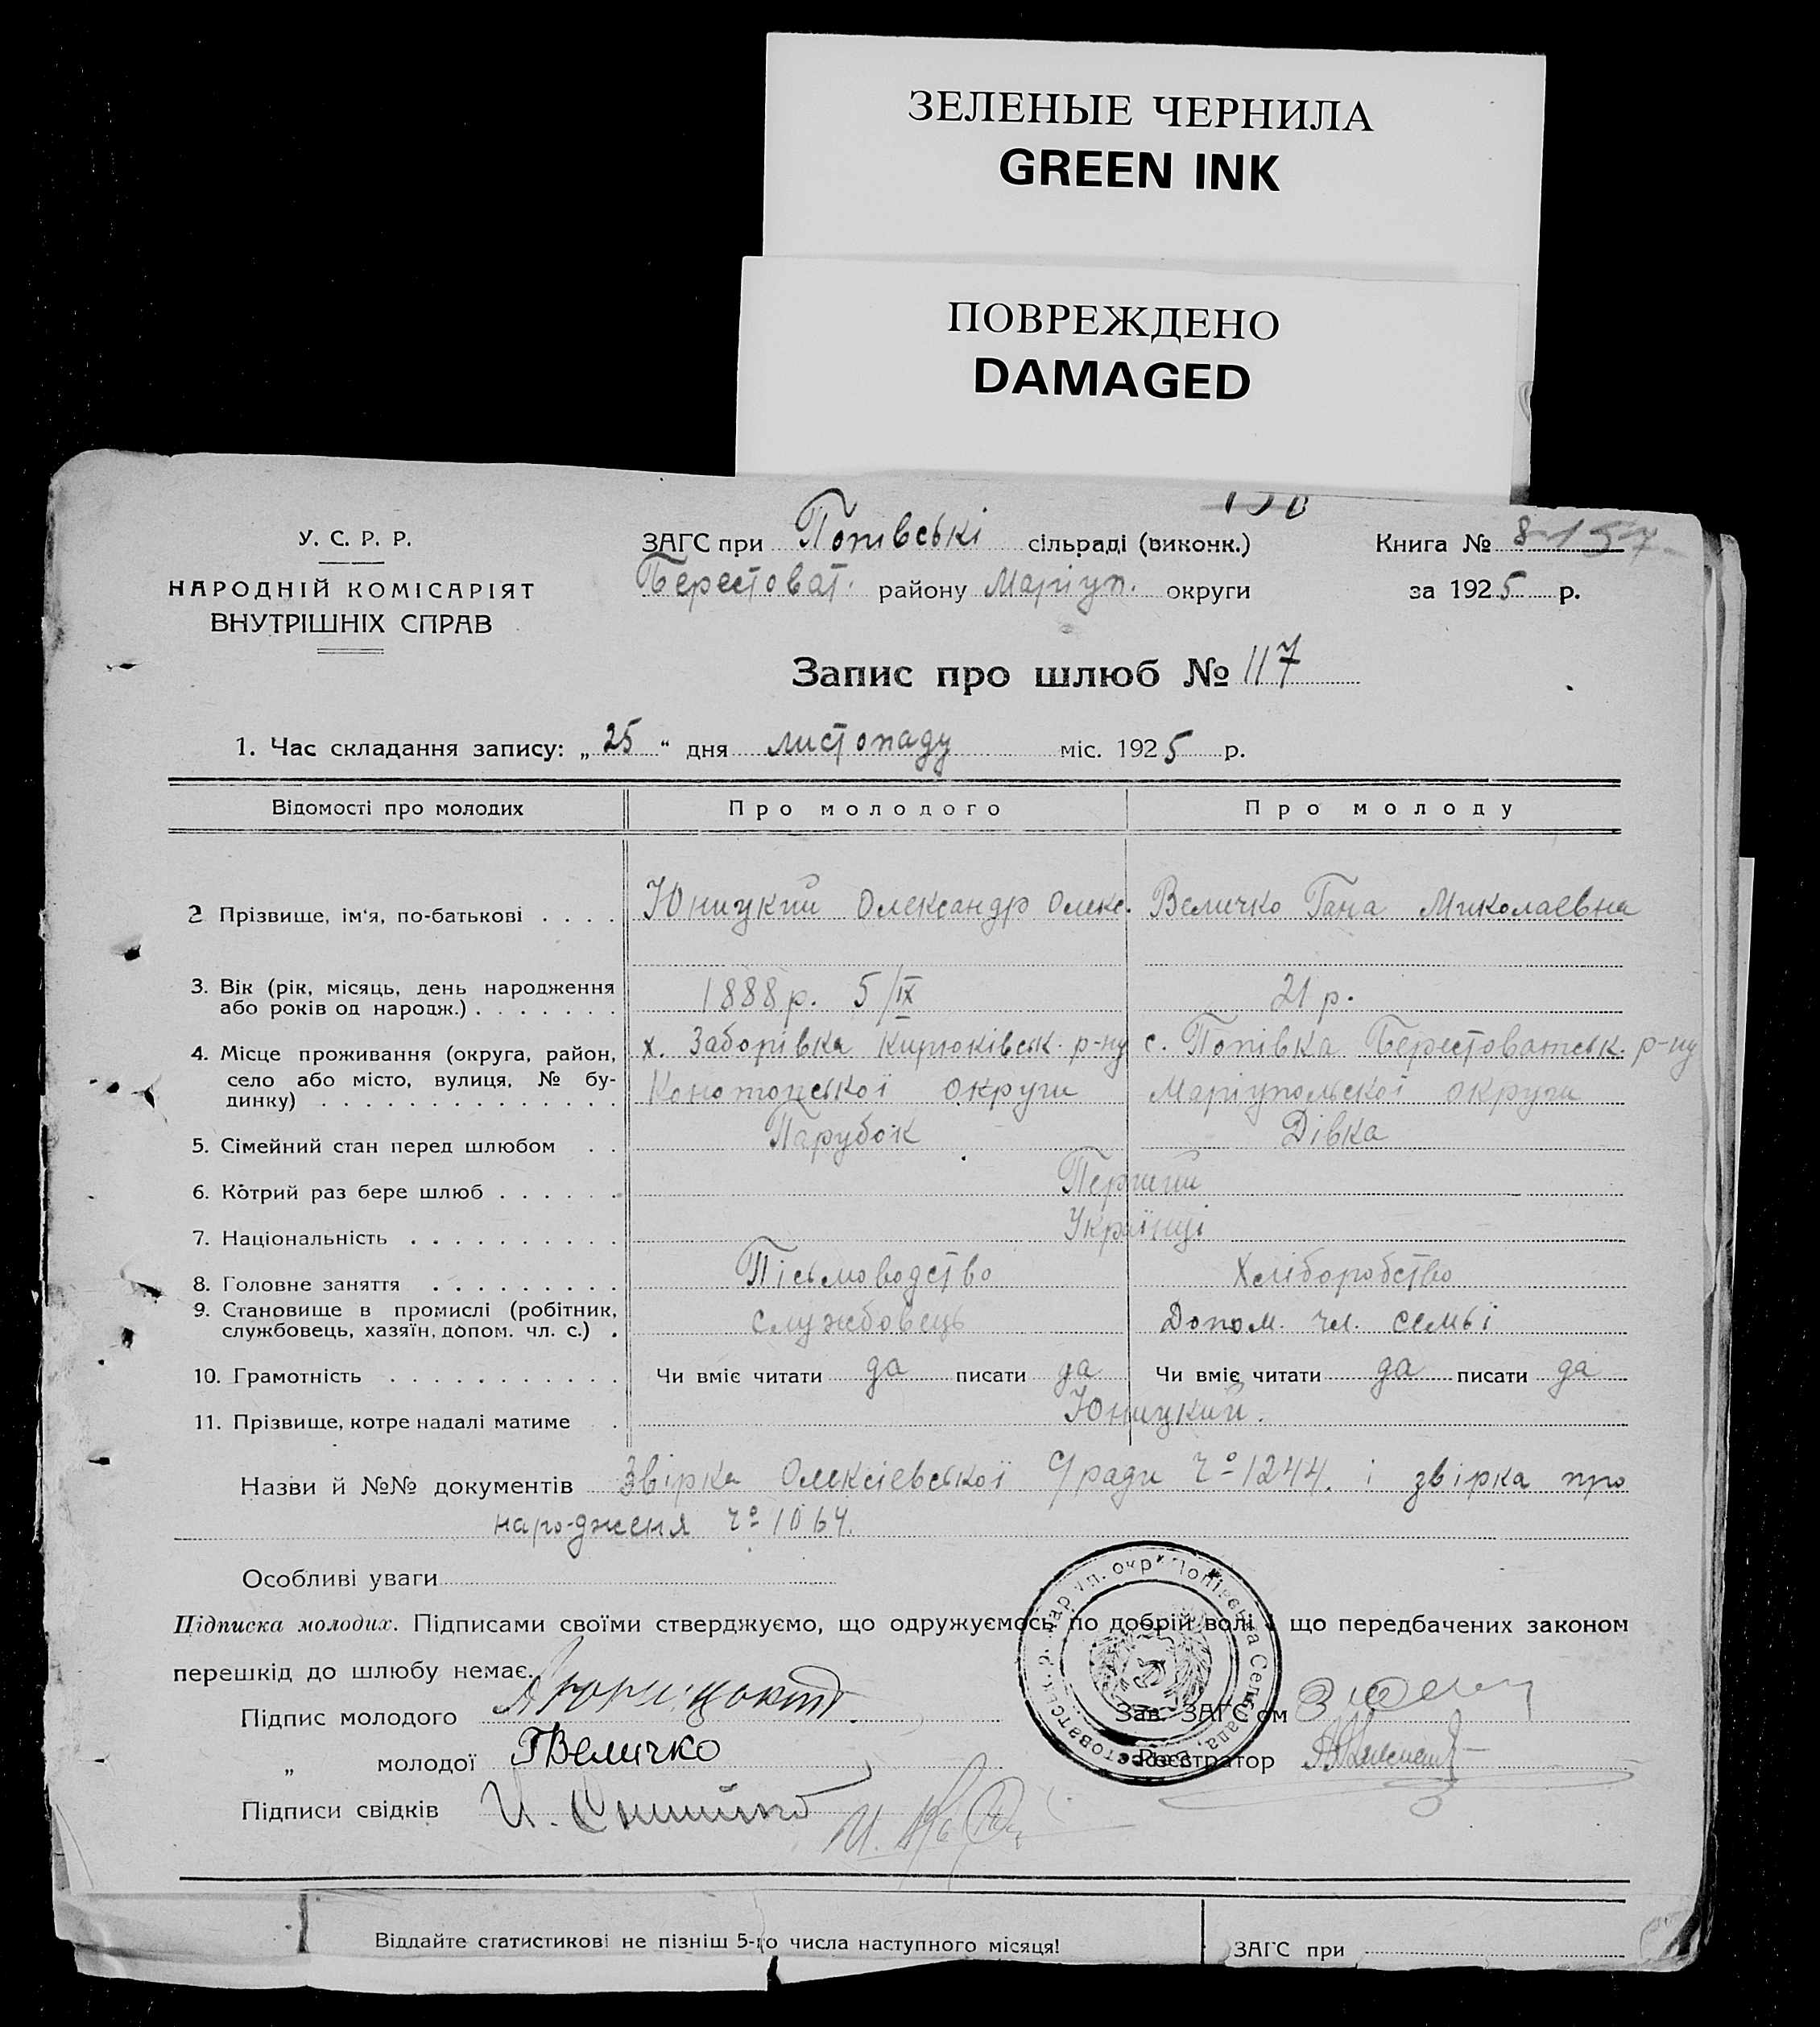 ЗЕЛЕНЫЕ ЧЕРНИЛА
GREEN INK
ПОВРЕЖДЕНО
DAMAGED
У. С. Р. Р.
НАРОДНІЙ КОМІСАРІЯТ
ВНУТРІШНІХ СПРАВ
ЗАГС при Попівські сільраді (виконк.)
Берестоват. району Маріуп. округи
Книга № 8 157
за 1925 р.
Запис про шлюб № 117
1. Час складання запису: „25“ дня листопаду міс. 1925 р.
Відомості про молодих Про молодого Про молоду
2 Прізвище, ім'я, по-батькові . . . . Юницкий Олександр Олекс. Величко Гана Миколаевна
3. Вік (рік, місяць, день народження
або років од народж.) . . . . . . . 1888 р. 5/IX 21 р.
4. Місце проживання (округа, район, х. Заборівка р-ну с. Попівка Берестоватськ. р-ну
село або місто, вулиця, № бу- Конотопської округи Маріупольскої округи
динку) . . . . . . . . . . . . . .
5. Сімейний стан перед шлюбом . . Парубок Дівка
6. Котрий раз бере шлюб . . . . . . Перший
7. Національність . . . . . . . . . . Українці
8. Головне заняття . . . . . . . . . Пісьмоводство Хліборобство
9. Становище в промислі (робітник,
службовець, хазяїн, допом. чл. с.) . службовець Допом. чл. семьі
10. Грамотність . . . . . . . . . . . Чи вміє читати да писати да Чи вміє читати да писати да
11. Прізвище, котре надалі матиме . Юницкий.
Назви й №№ документів Звірка Олексіевської С/ради ч° 1244. і звірка про
народженя ч° 1064.
Особливі уваги
Підписка молодих. Підписами своїми стверджуємо, що одружуємось по добрій волі і що передбачених законом
перешкід до шлюбу немає.
Підпис молодого
Зав. ЗАГС'ом
„ молодої ГВеличко
Реєстратор
Підписи свідків
Віддайте статистикові не пізніш 5-го числа наступного місяця!
ЗАГС при